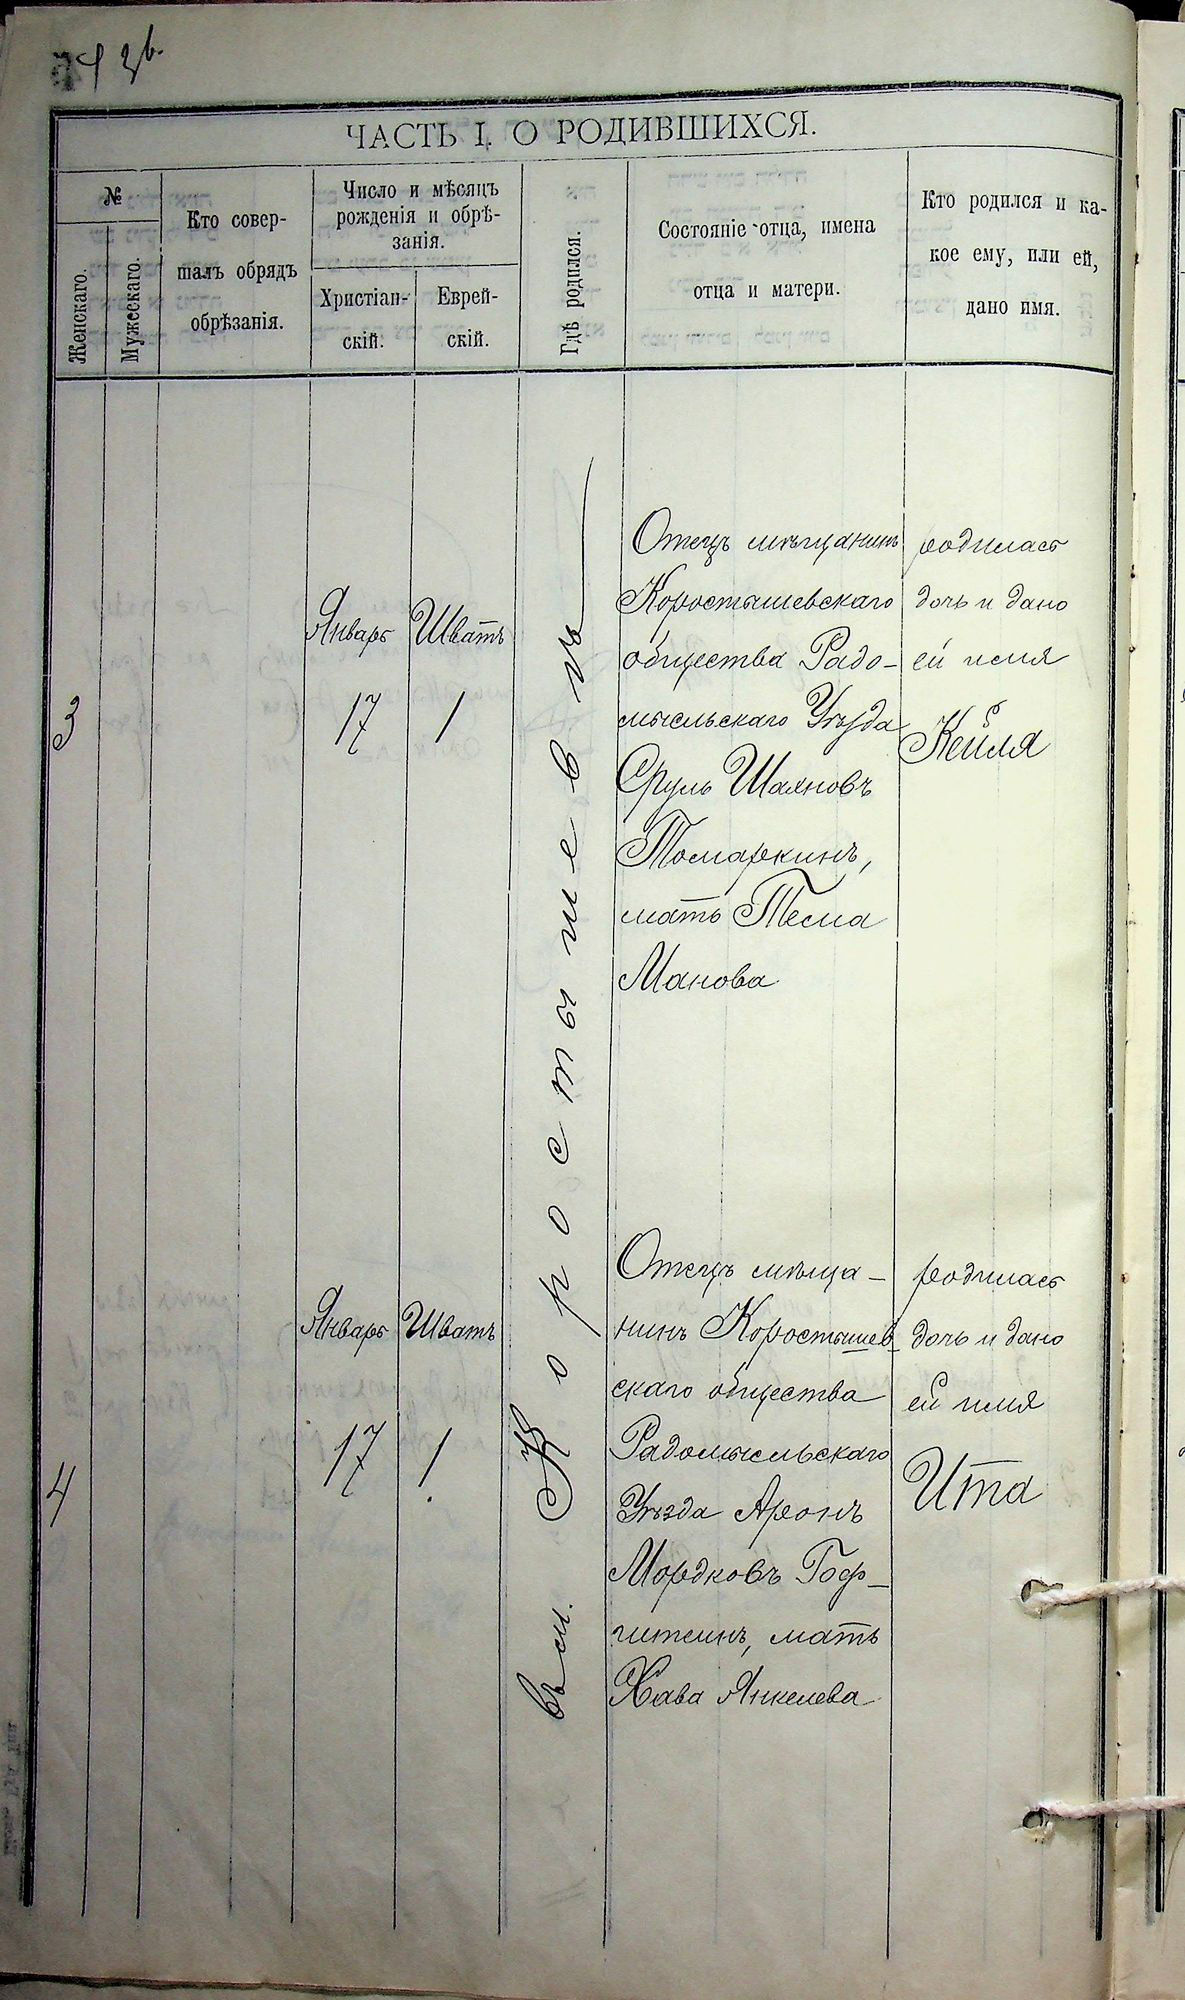 ЧАСТЬ I. О РОДИВШИХСЯ.
№
Женскаго.
Мужескаго.
Кто совер-
шалъ обрядъ
обрѣзанія.
Число и мѣсяцъ
рожденія и обрѣ-
занія.
Христіан-
скій.
Еврей-
скій.
Гдѣ родился.
Состояніе отца, имена
отца и матери.
Кто родился и ка-
кое ему, или ей,
дано имя.
3
Январь
17
Шватъ
1
въ м. Коростышевѣ
Отецъ мѣщанинъ
Коростышевскаго
общества Радо-
мысльскаго Уѣзда
Сруль Шаяновъ
Томаркинъ,
мать Тема
Манова
родилась
дочь и дано
ей имя
Кейля
4
Январь
17
Шватъ
1
Отецъ мѣща-
нинъ Коростышев-
скаго общества
Радомысльскаго
Уѣзда Аронъ
Мордковъ Гоф-
штеинъ, мать
Хава Янкелева
родилась
дочь и дано
ей имя
Ита